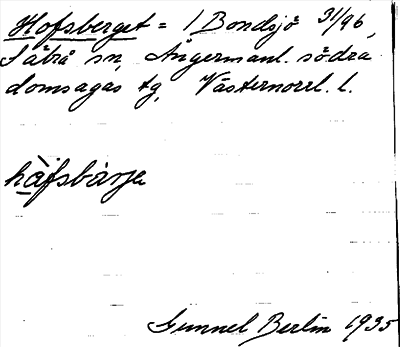 Hofsberget = 1 Bondsjö 31/96,
Säbrå sn, Ångermanl. södra
domsagas tg, Västernorrl. l.
håfsbärje
Gunnel Berlin 1935